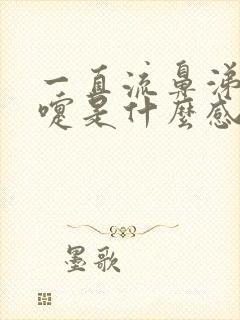 一直流鼻涕
嚏是什麼感
墨歌